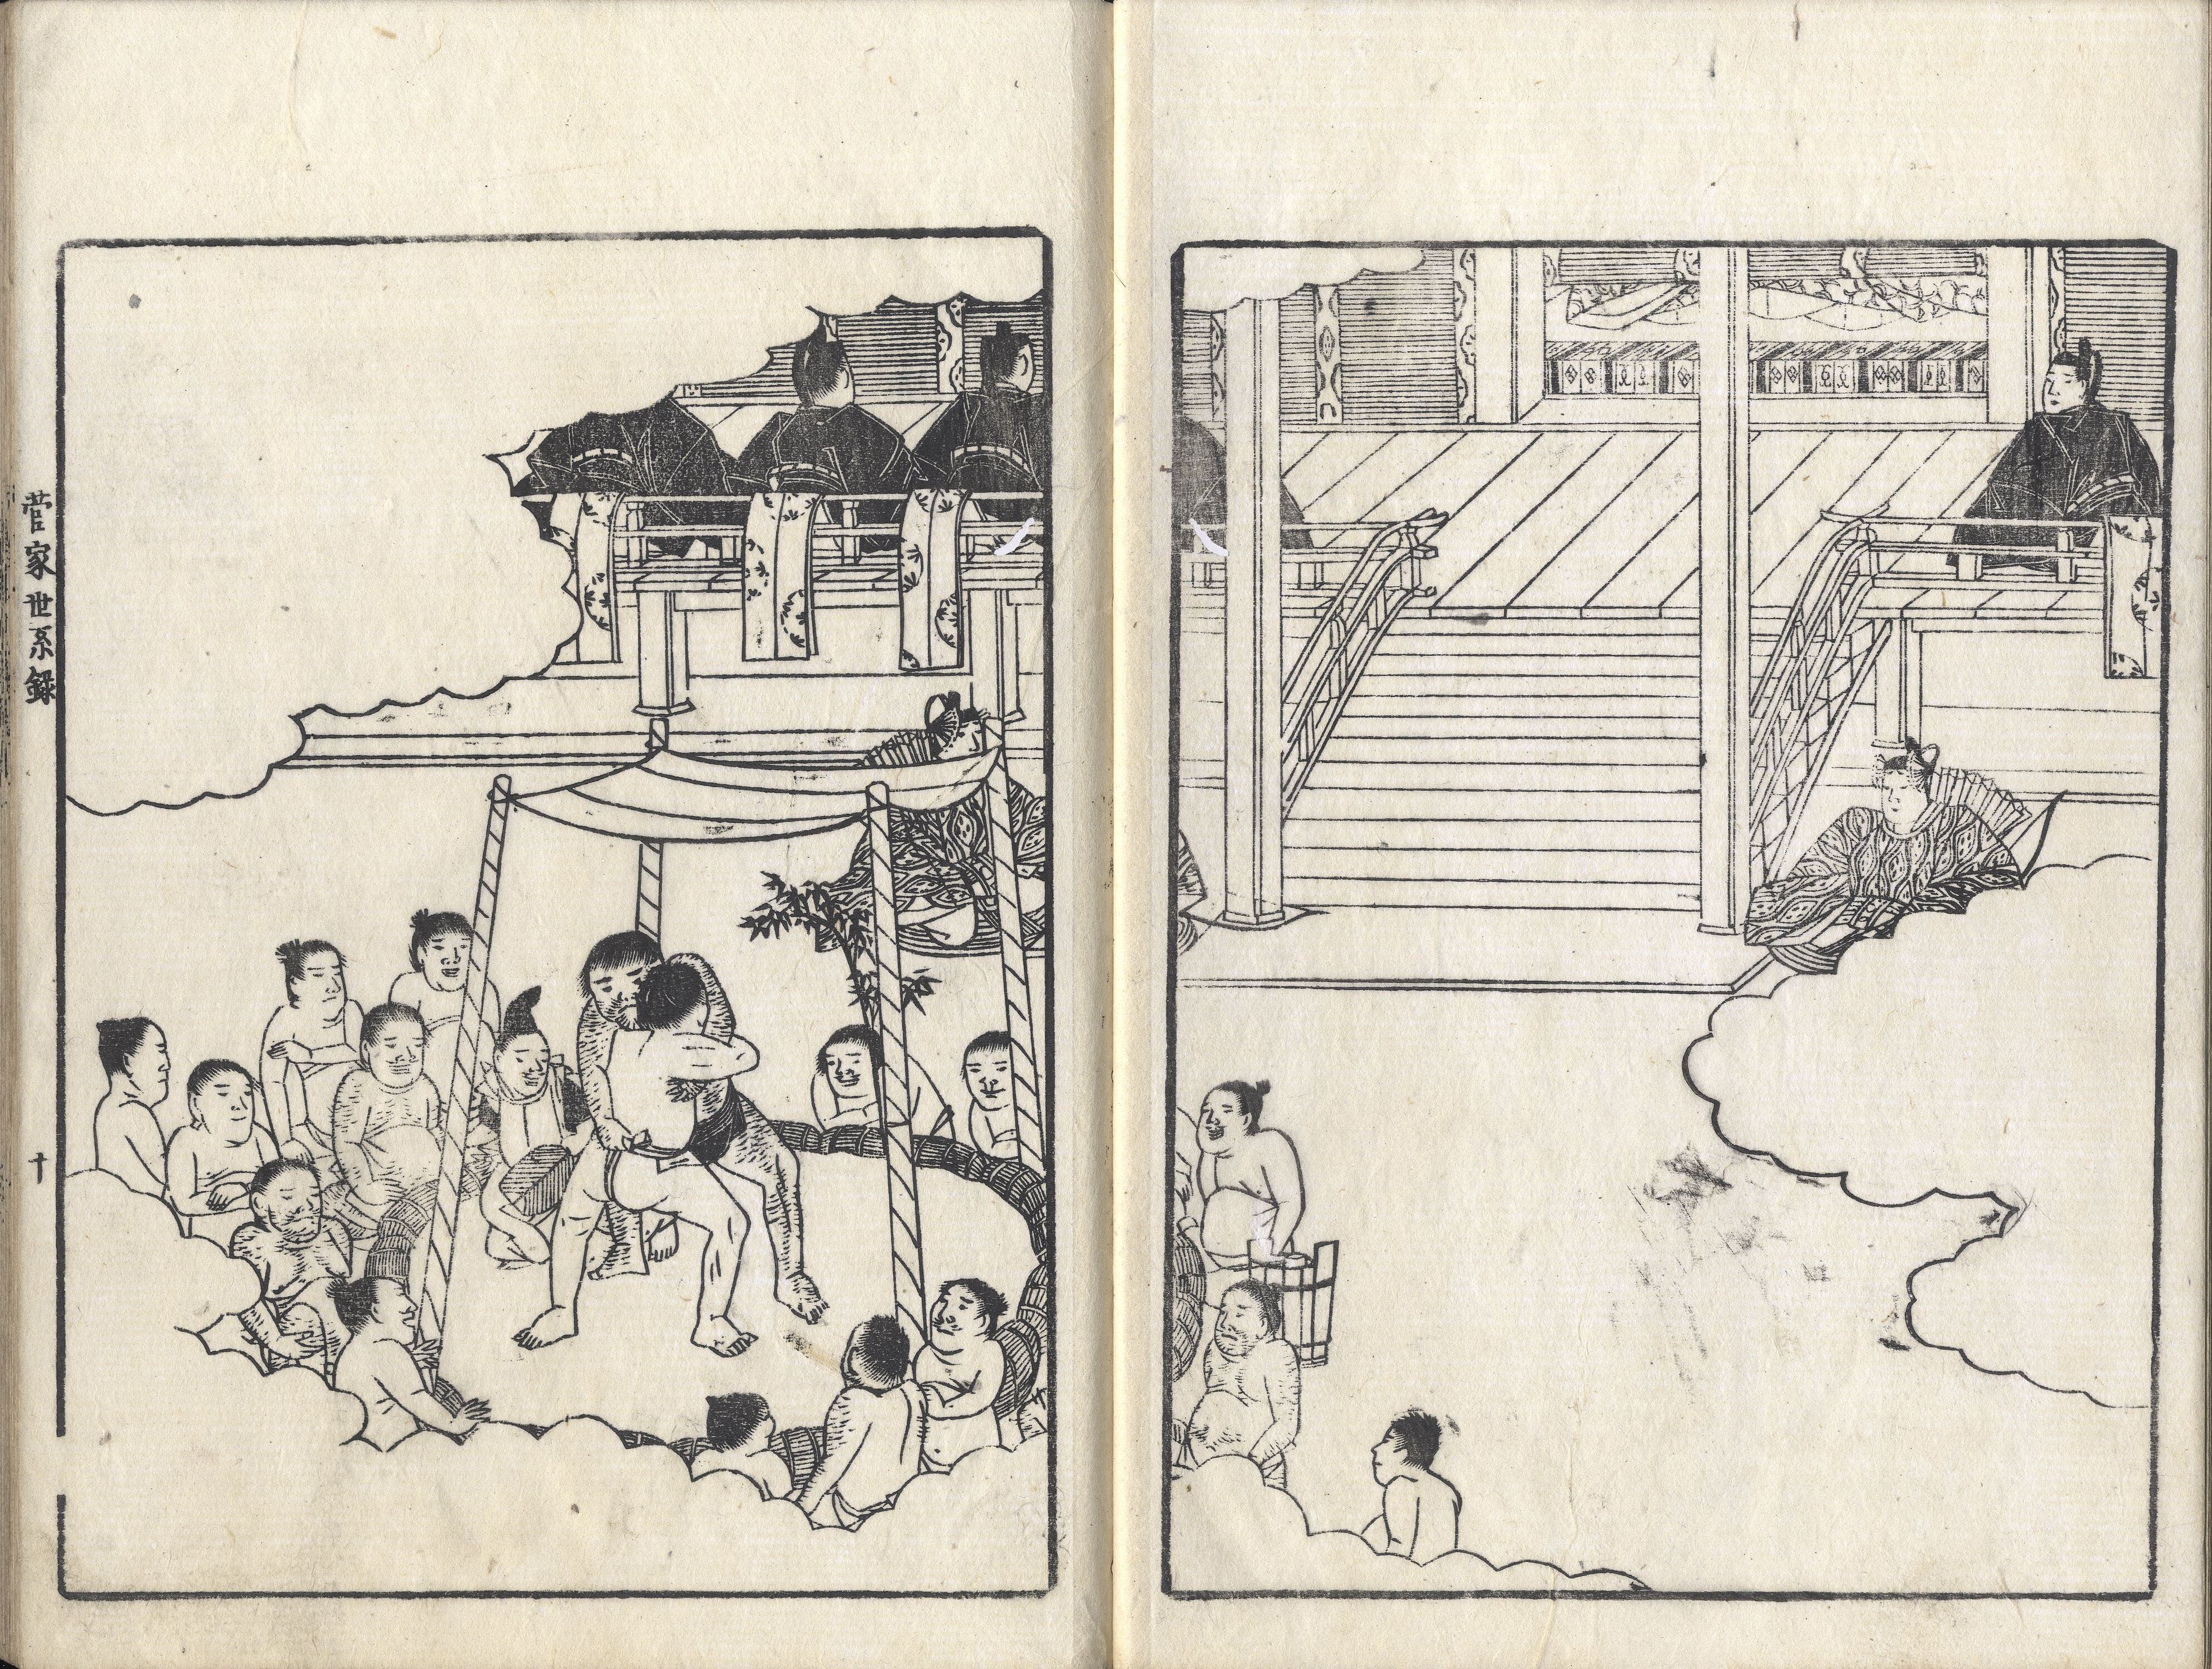 菅家世系録
十